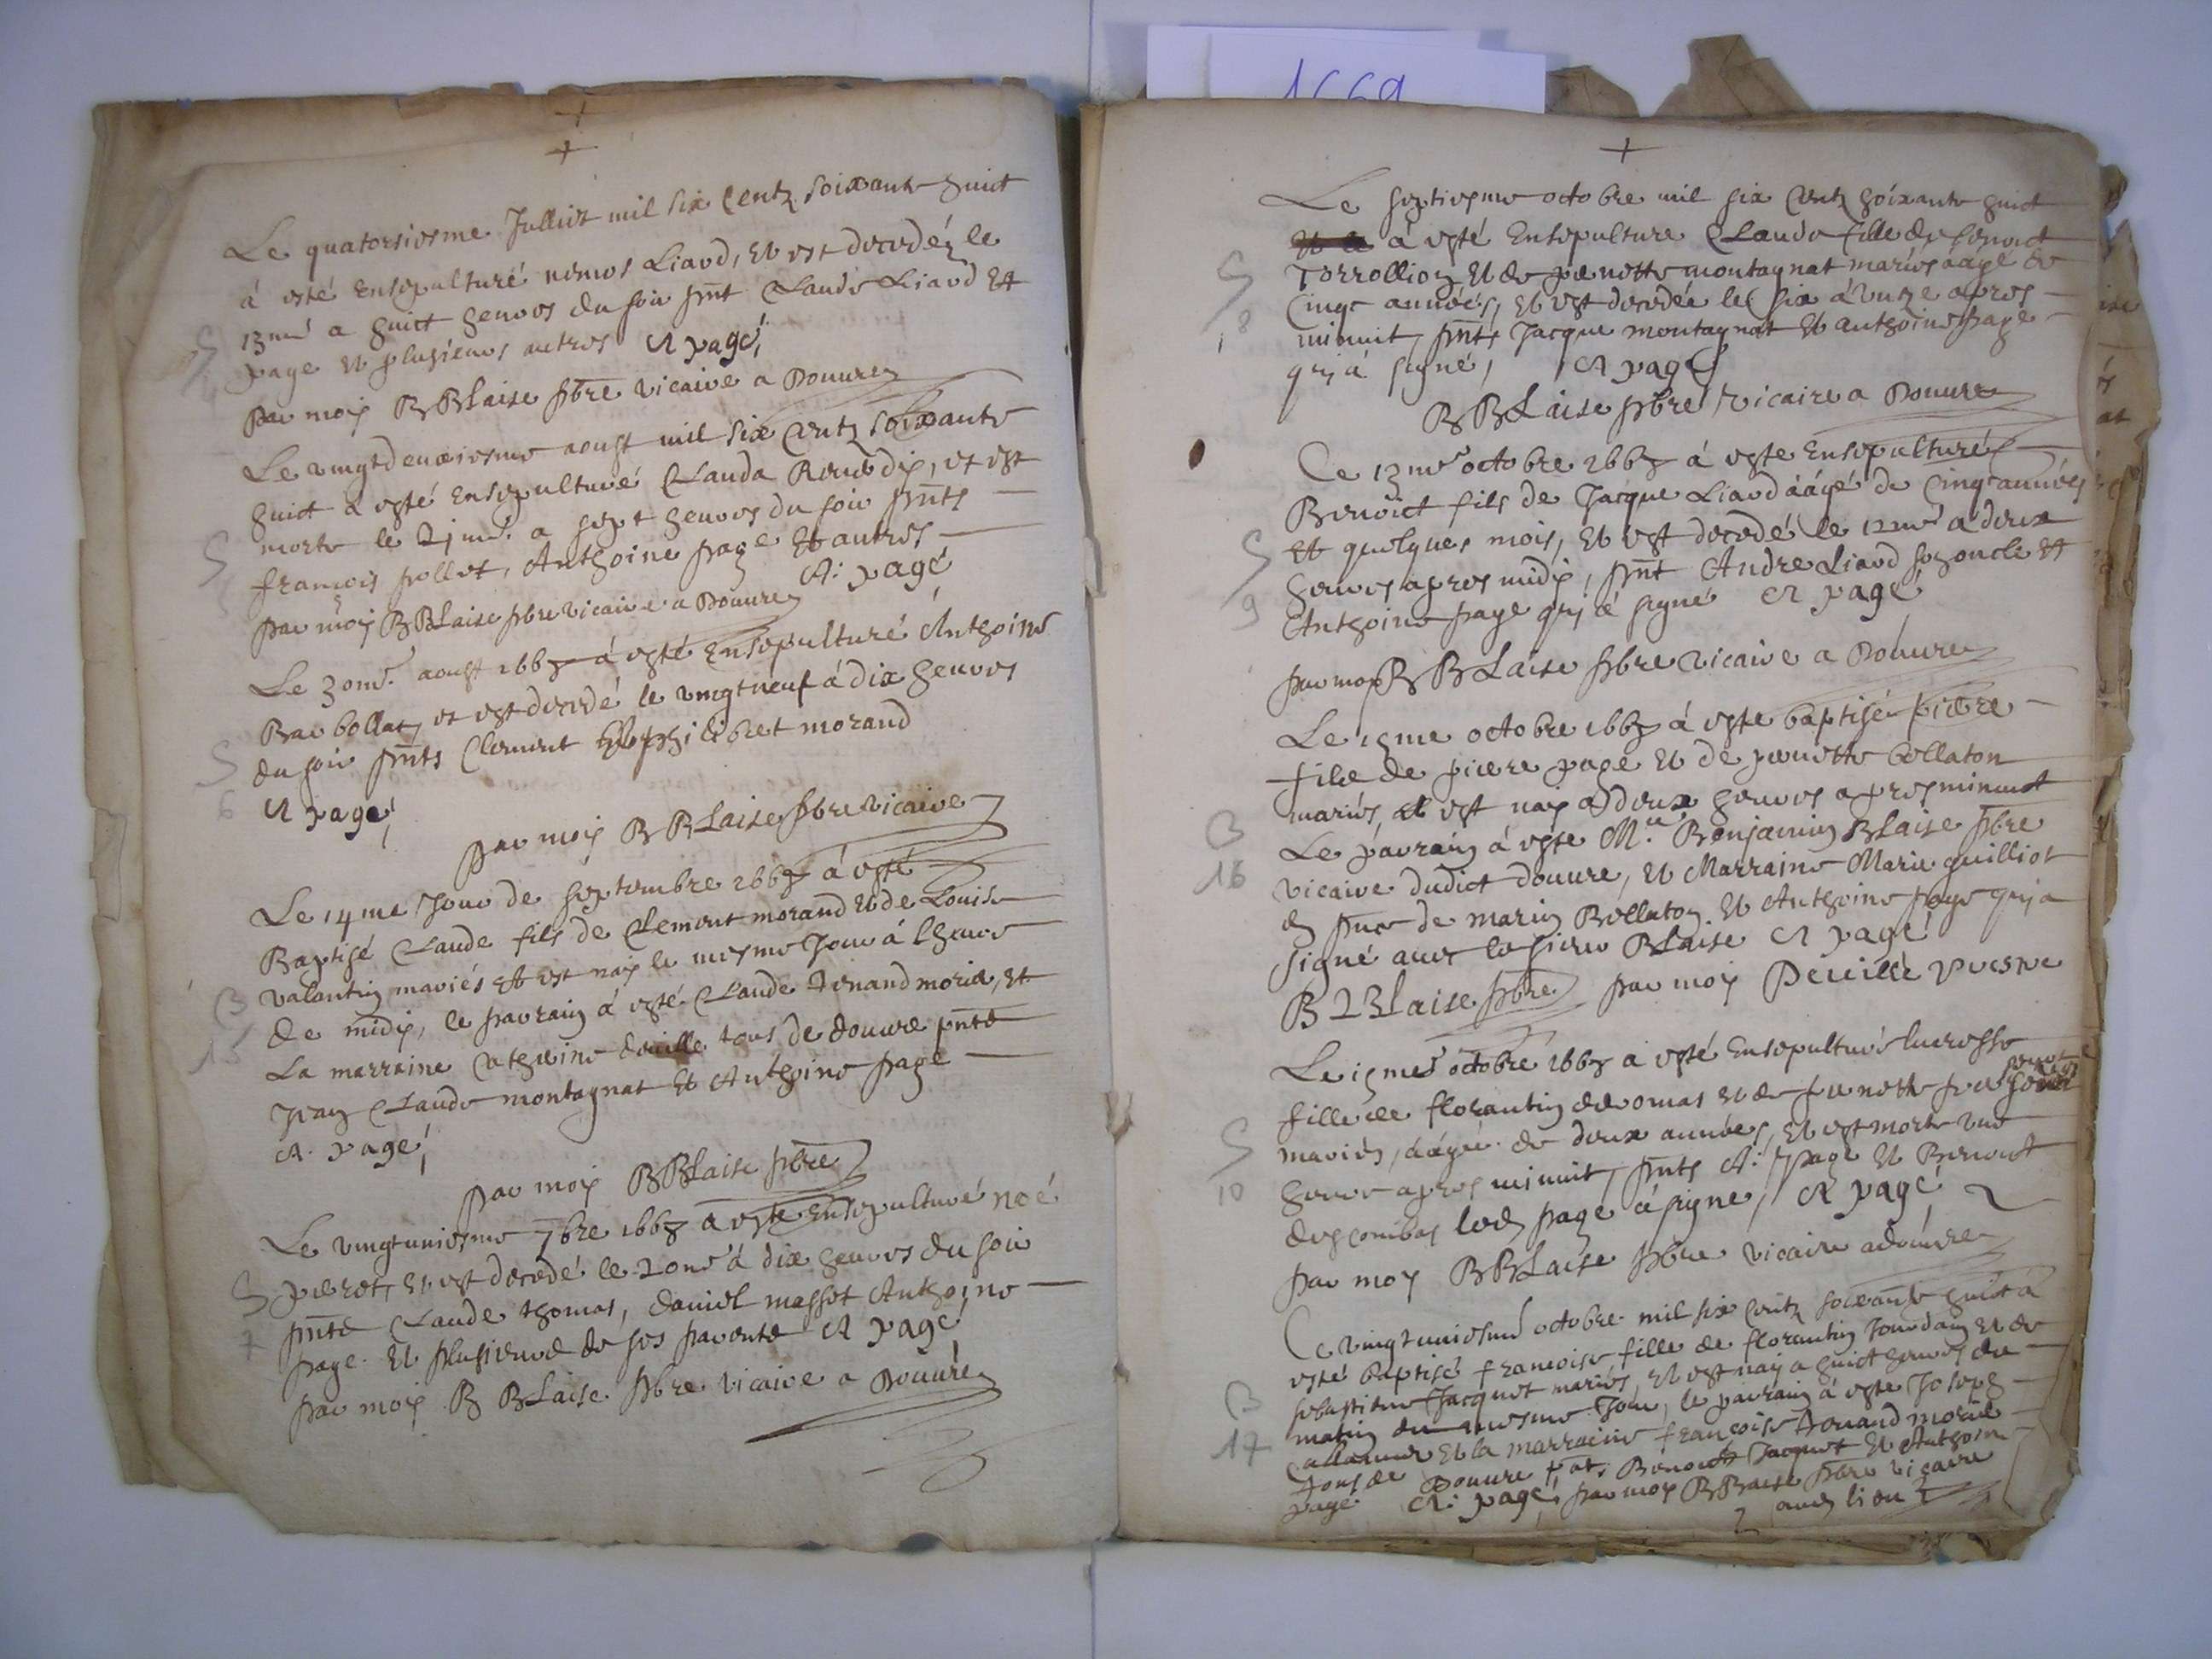 1669
+
+
Le quatorsiesme Julliet mil six centz soixante huict
à esté Ensepulturé nemos Liard, Et est decedéz le
13me a huict heures du soir pnt Claude Liard Et
page et plusieurs autres A page
par moy B BLaise pbre vicaire a Douure
Le vingtdeuxiesme aoust mil six Centz soixante
huict à esté Ensepulturé Clauda Reuerdy, et est
morte le 21me. a sept heures du soir pnts
francois pollet, Anthoine page Et autres
par moy B BLaise pbre vicaire a Douure A: page
Le 30me. aoust 1668 à esté Ensepulturé Anthoine
Barbollat, et est decedé le vingtneuf à dix heures
du soir pnts Clement Et philibret morand
A page
par moy B BLaise pbre vicaire
Le 14me Jour de septembre 1668 à esté
Baptisé Claude fils de Clement morand Et de Louise
valantin mariés Et est nay le mesme Jour à lheure
de midy, le parrain à esté Claude tenand morid, Et
La marraine Catherine tous de douure pnts
Jean Claude montagnat Et Anthoine page
A. page
par moy B BLaise pbre
Le vingtuniesme 7bre 1668 à esté Ensepulturé noé
pieret, Et est decedé le 20me à dix heures du soir
pnts Claude thomas, daniel masset Anthoine
page. Et plusieurs de ses parents A page
par moy B BLaise pbre vicaire a Douure
S
4
S
5
S
6
B
15
S
7
+
Le septiesme octobre mil six Centz soixante huict
à esté Ensepulture Claude fille de benoict
Torrollion Et de pernette montagnat mariés aagé de
Cinqc années, Et est decedée le six à unze apres
minuit, pnts Jacque montagnat Et anthoine page
qui à signé, A page
B BLaise pbre vicaire a Douure
Ce 13me octobre 1668 à este Ensepulturé
Benoict fils de Jacque Liard aagé de Cinqc années
Et quelques mois, Et est decedé le 12me à deux
heures apres midy, pnt Andre Liard son oncle Et
Anthoine page qui à signé A page
par moy B BLaise pbre vicaire a Douure
Le 15me octobre 1668 à este baptisé pierre
fils de pierre page Et de pernette bollaton
mariés, et est nay à deux heures apres minuict
Le parrain à este M.re Benjamin BLaise pbre
vicaire dudict douure, Et Marraine Marie guilliot
de marin Bollaton. Et Anthoine page qui a
signé auec le sieur BLaise A page
B BLaise pbre par moy
Le 19me octobre 1668 a esté Ensepulturé lucresse
fille de florantin Et de pernette
mariés, aagée de deux années, Et est morte une
heure apres minuit, pnts A: page Et Benoict
descombas led page à signe, A page
par moy B BLaise pbre vicaire a douure
Ce vingtuniesme octobre mil six Centz soixante huict a
esté baptisé francoise fille de florantin Jourdain Et de
sebastiene Jacquet mariés, Et est nay a huict heures du
matin du mesme Jour, le parrain à este Joseph
Et la marraine francoise tenand morid
tous de Douure pnts Benoict Jacquet Et Anthoin
page A: page par moy B BLaise pbre vicaire
aud lieu
S
8
S
9
B
16
S
10
B
17